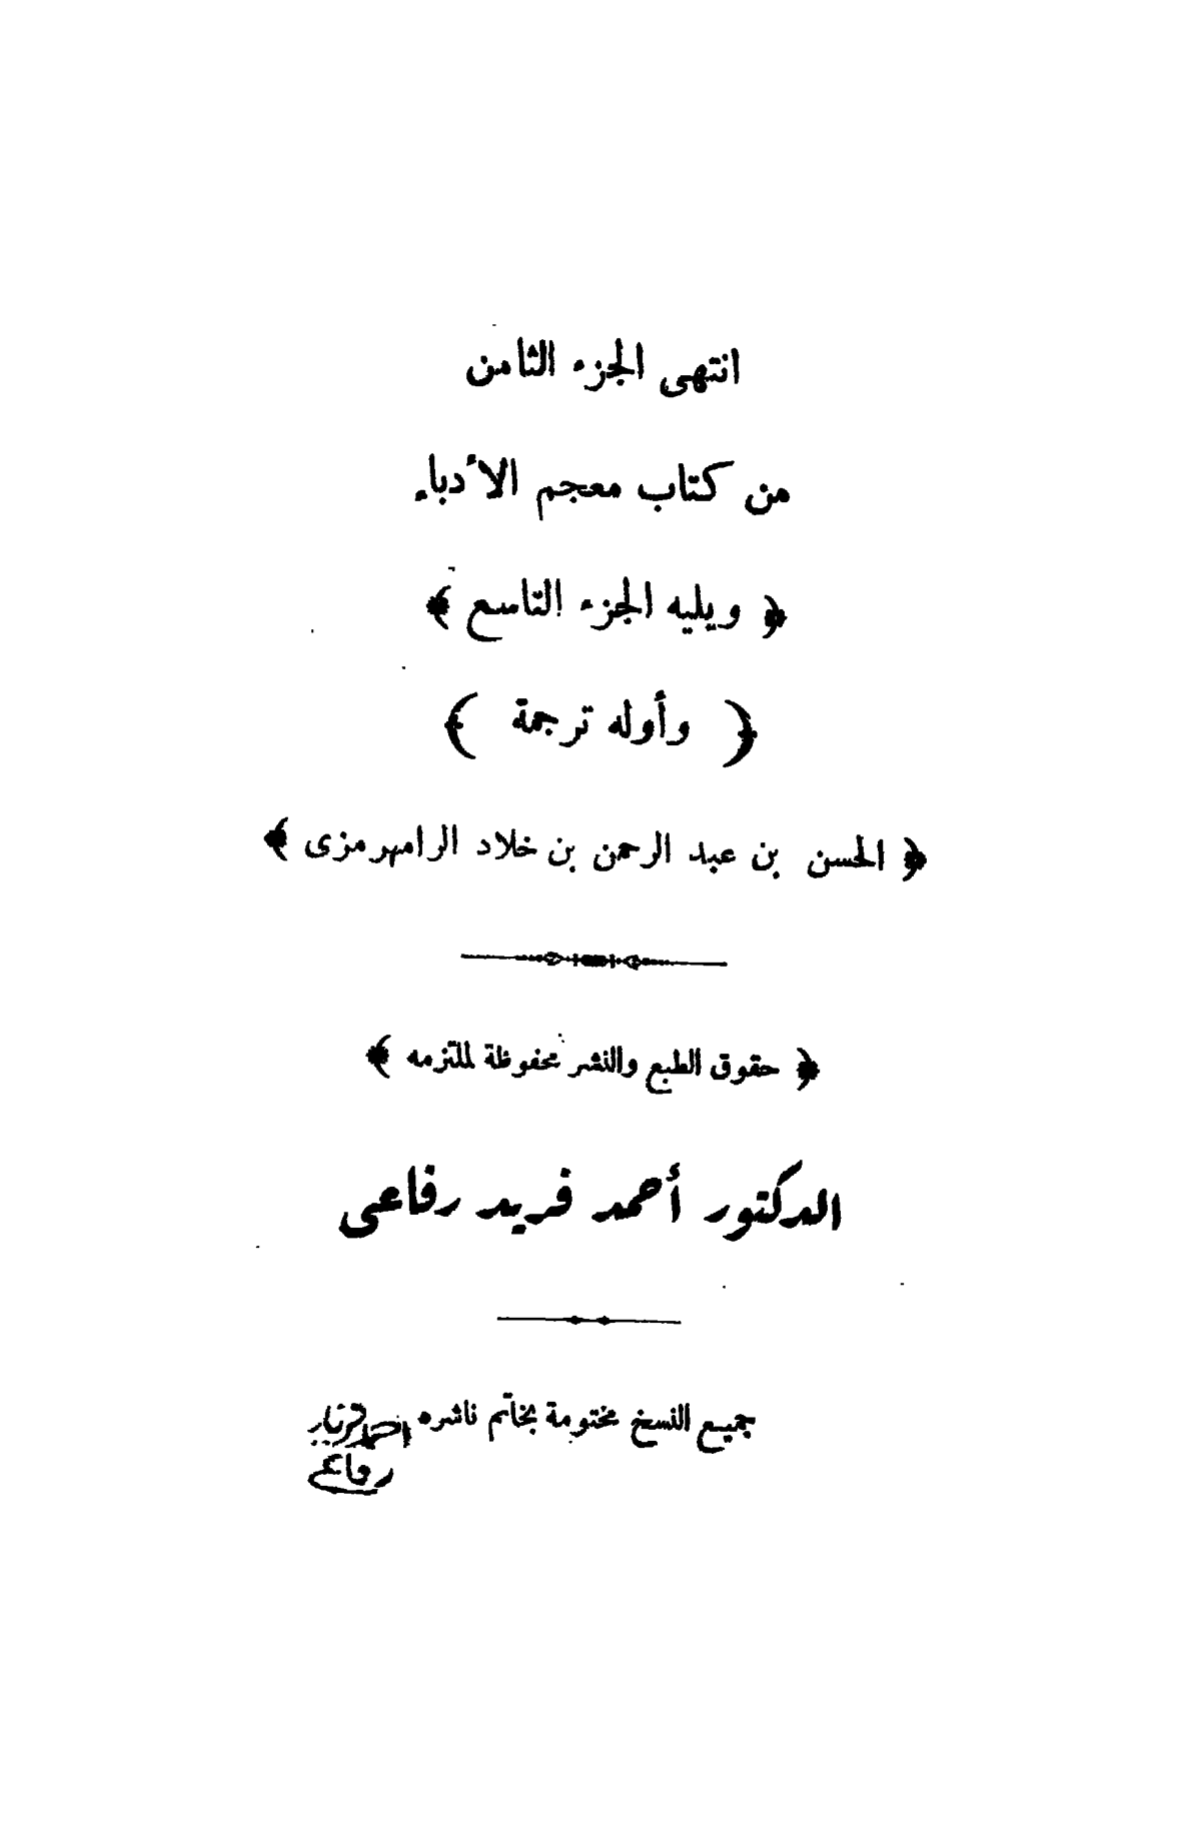 انتهى الجزء الثامن
من كتاب معجم الأدباء
﴿ ويليه الجزء التاسع ﴾
﴿ وأوله ترجمة ﴾
﴿ الحسن بن عبد الرحمن بن خلاد الرامهرمزى ﴾
﴿ حقوق الطبع والنشر محفوظة لملتزمه ﴾
الدكتور أحمد فريد رفاعى
جميع النسخ مختومة بخاتم ناشره احمد فريد
رفاعى